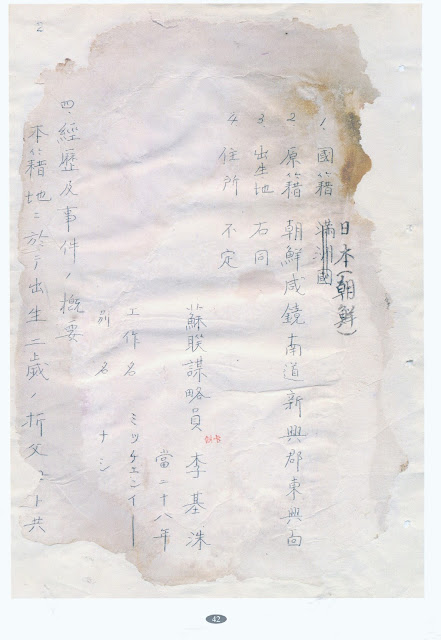 日本(朝鮮)
1. 國籍 滿洲國
2. 原籍 朝鮮咸鏡南道新興郡東興面
3. 出生地 右同
4. 住所 不定
蘇联謀略員 李基洙
當二十八年
工作名 ミツチェンイー
別名 ナシ
四、經歷及事件ノ概要
本籍地ニ於テ出生二歲ノ折父
ト共
2
42